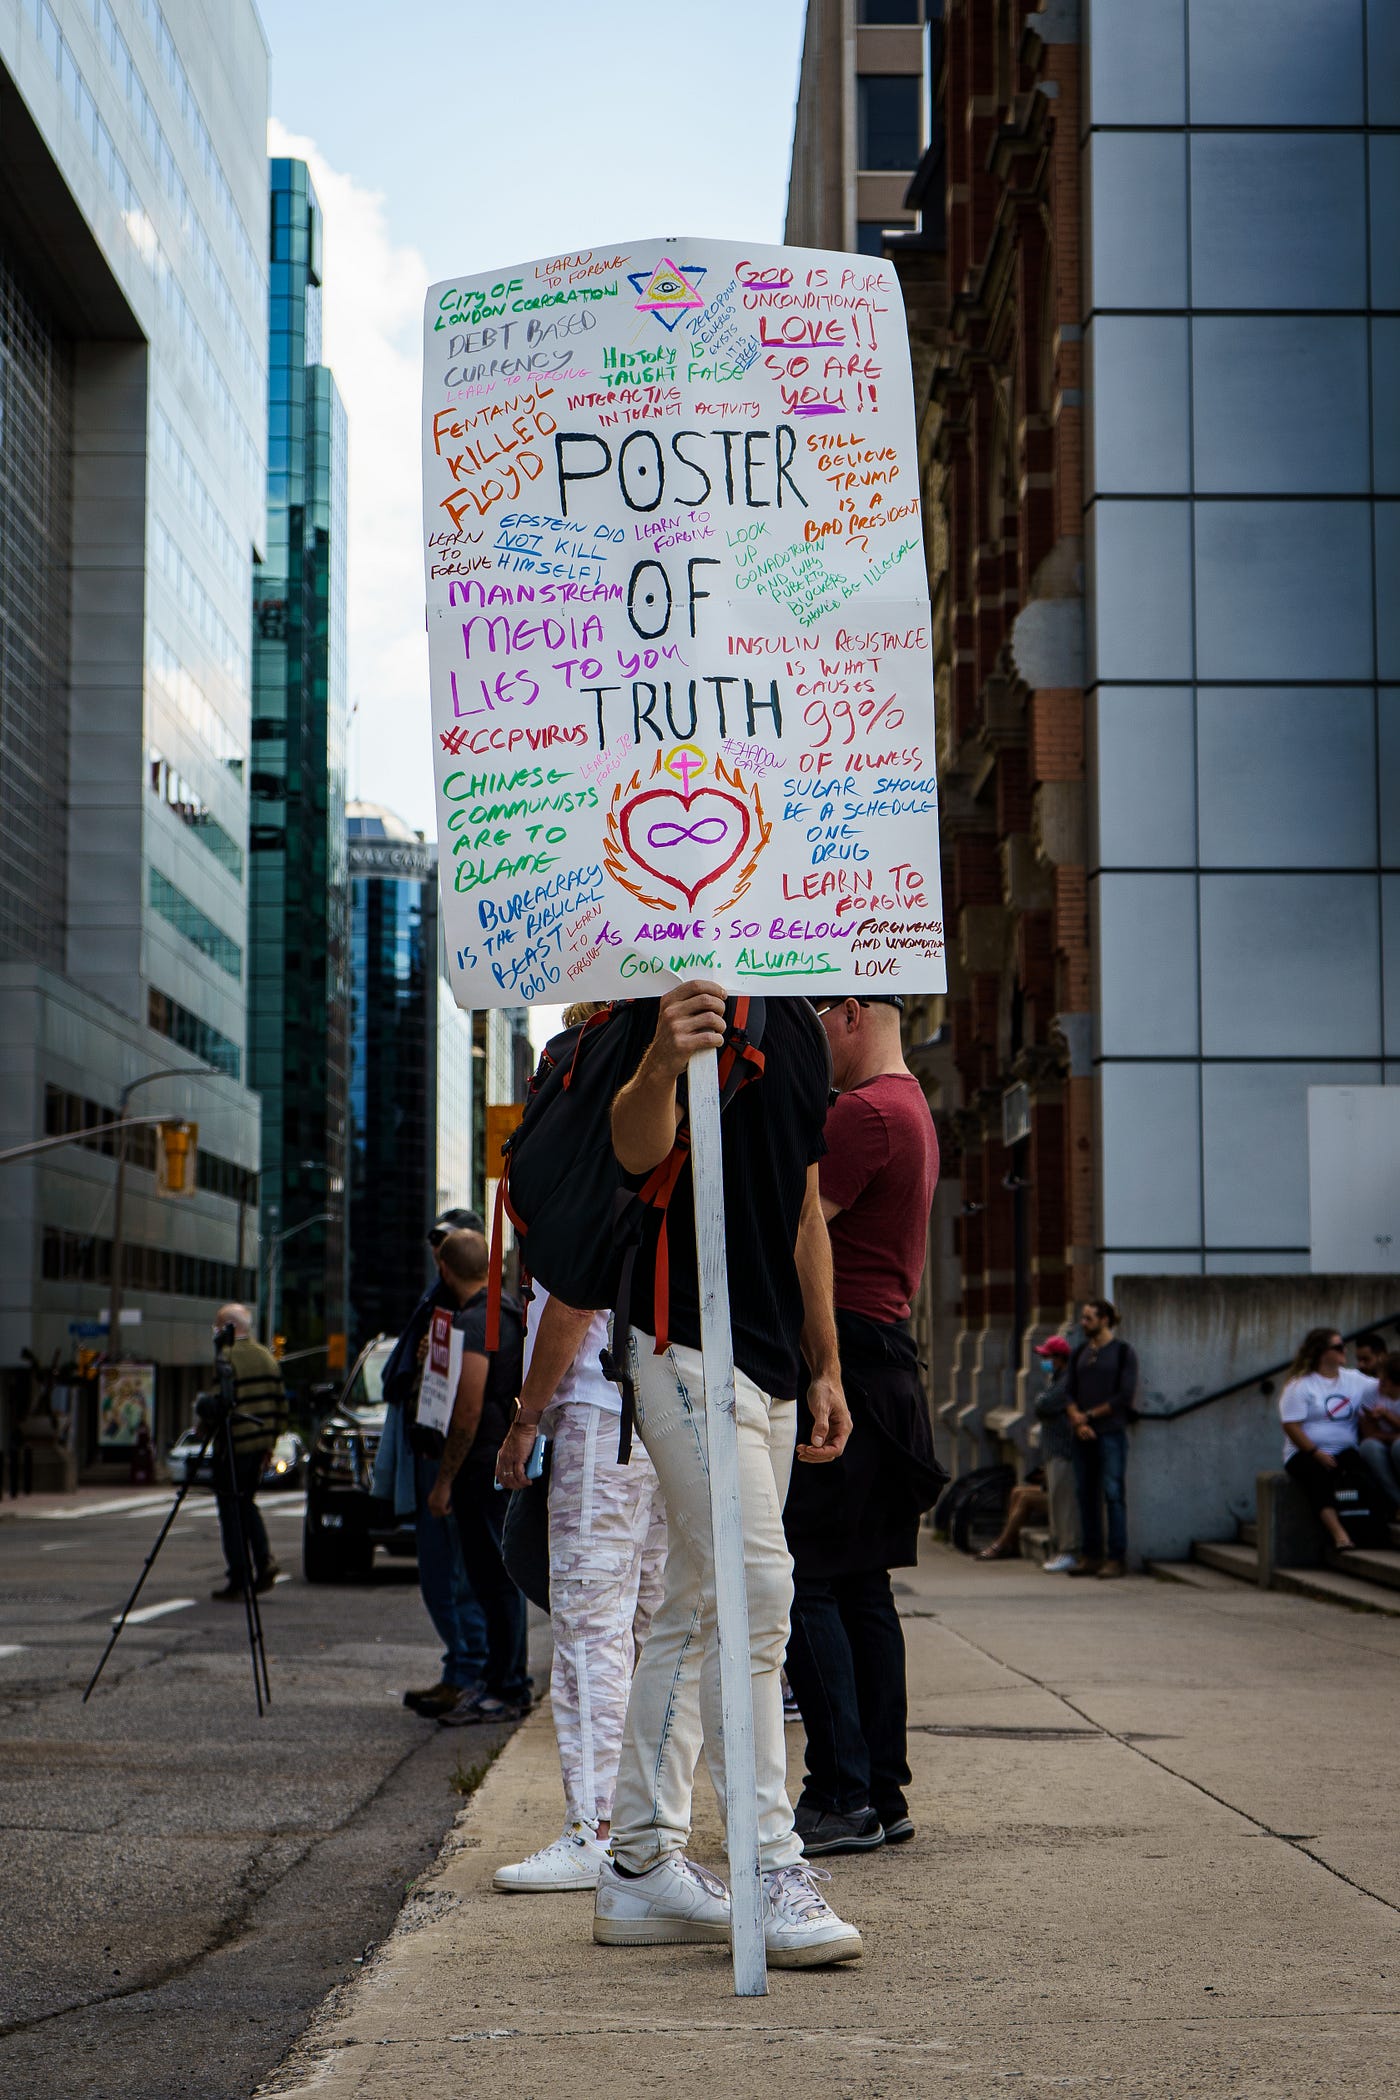 CITY OF
LONDON CORPORATION
LEARN
TO FORGIVE
DEBT BASED
CURRENCY
LEARN TO FORGIVE
HISTORY IS
TAUGHT FALSE
ZEROPOINT
ENERGY
EXISTS
IT IS
FREE!
GOD IS PURE
UNCONDITIONAL
LOVE!!
SO ARE
YOU!!
INTERACTIVE
INTERNET ACTIVITY
FENTANYL
KILLED
FLOYD
POSTER
OF
TRUTH
STILL
BELIEVE
TRUMP
IS A
BAD PRESIDENT
?
LEARN
TO
FORGIVE
EPSTEIN DID
NOT KILL
HIMSELF!
LEARN TO
FORGIVE
LOOK
UP
GONADOTROPIN
AND WHY
PUBERTY
BLOCKERS
SHOULD BE ILLEGAL
MAINSTREAM
MEDIA
LIES TO YOU
INSULIN RESISTANCE
IS WHAT
CAUSES
99%
OF ILLNESS
#CCPVIRUS
LEARN TO
FORGIVE
#SHADOW
GATE
CHINESE
COMMUNISTS
ARE TO
BLAME
SUGAR SHOULD
BE A SCHEDULE
ONE
DRUG
BUREACRACY
IS THE BIBLICAL
BEAST
666
LEARN
TO
FORGIVE
LEARN TO
FORGIVE
AS ABOVE, SO BELOW
GOD WINS. ALWAYS
FORGIVENESS
AND UNCONDITION
-AL
LOVE